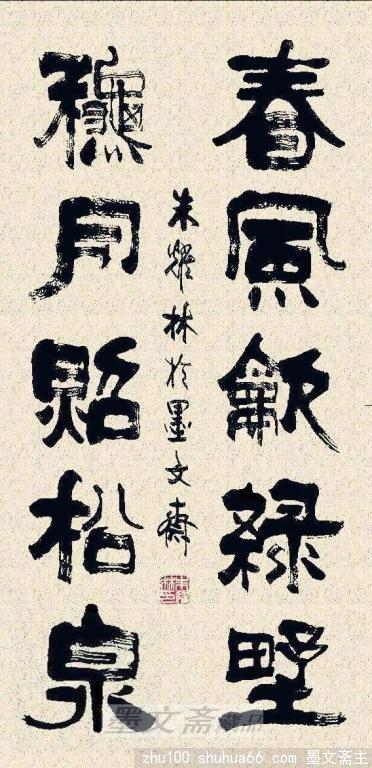 春風龡綠野
龝月照松泉
朱耀林於墨文齋
墨文斋藏品
zhu100.shuhua66.com 墨文斋主